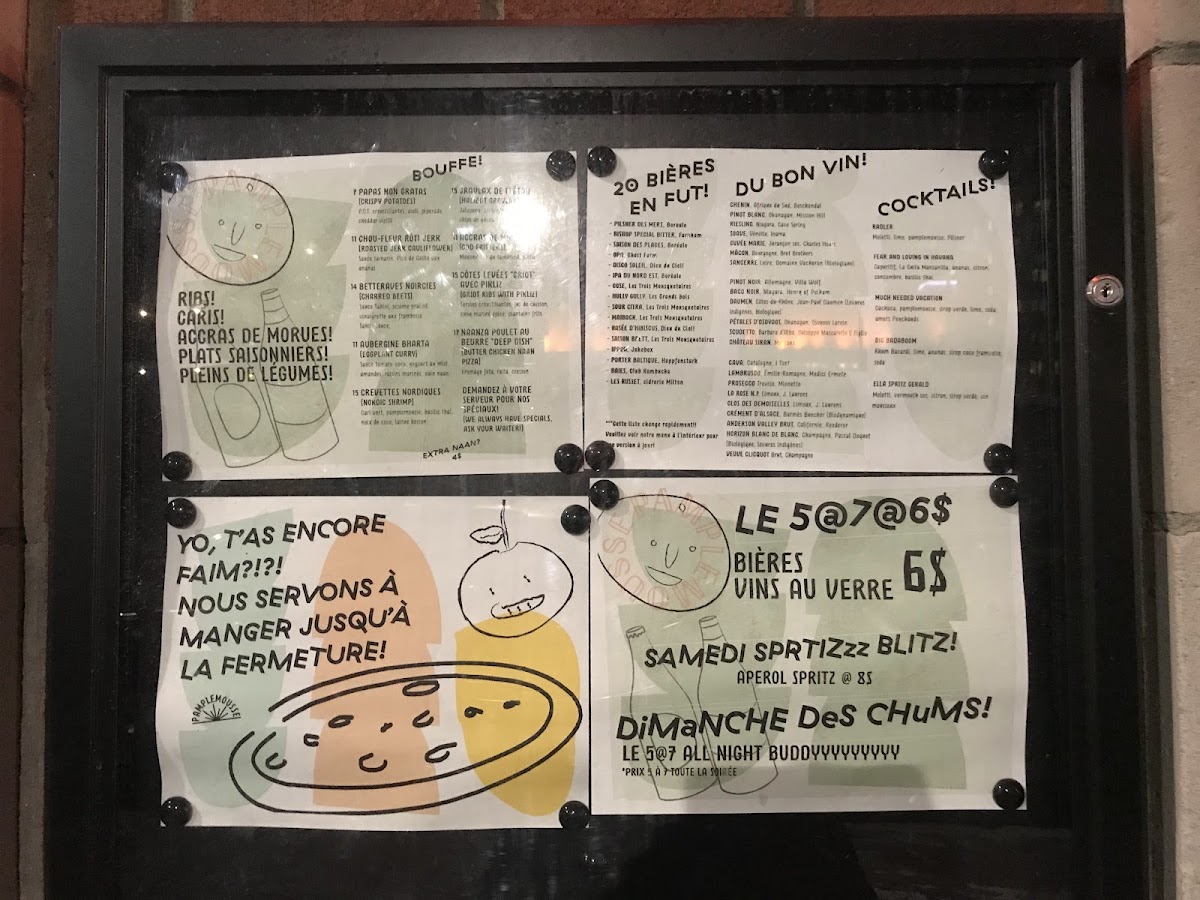 PAMPLEMOUSSE
RIBS!
CARIS!
ACCRAS DE MORUES!
PLATS SAISONNIERS!
PLEINS DE LÉGUMES!
BOUFFE!
9 PAPAS MON GRATAS
(CRISPY POTATOES)
11 CHOU-FLEUR RÔTI JERK
(ROASTED JERK CAULIFLOWER)
ananas
14 BETTERAVES NOIRCIES
(CHARRED BEETS)
vinaigrette aux framboise
11 AUBERGINE BHARTA
(EGGPLANT CURRY)
15 CREVETTES NORDIQUES
(NORDIC SHRIMP)
15 CÔTES LEVÉES "GRIOT"
AVEC PIKLIZ
(GRIOT RIBS WITH PIKLIZ)
17 NAANZA POULET AU
BEURRE "DEEP DISH"
(BUTTER CHICKEN NAAN
PIZZA)
DEMANDEZ À VOTRE
SERVEUR POUR NOS
SPÉCIAUX!
(WE ALWAYS HAVE SPECIALS,
ASK YOUR WAITER!)
EXTRA NAAN?
4$
20 BIÈRES
EN FUT!
- PILSNER DES MERS, Boréale
- BISHOP SPECIAL BITTER, Farnham
- SAISON DES PLAGES, Boréale
- OPA, Ghost Farm
- DISCO SOLEIL, Dieu du Ciel!
- IPA DU NORD EST, Boréale
- GOSE, Les Trois Mousquetaires
- HULLY GULLY, Les Grands bois
- SOUR CITRA, Les Trois Mousquetaires
- MAIBOCK, Les Trois Mousquetaires
- ROSÉE D'HIBISCUS, Dieu du Ciel!
- SAISON BRETT, Les Trois Mousquetaires
- Jukebox
- PORTER BALTIQUE, Hopfenstark
- BAIES, Club Kombucha
- LES RUSSET, cidrerie Milton
***Cette liste change rapidement!!
Veuillez voir notre menu à l'intérieur pour
version à jour!
DU BON VIN!
CHENIN, Afrique du Sud, Boschendal
PINOT BLANC, Okanagan, Mission Hill
RIESLING, Niagara, Cave Spring
SOAVE, Vénétie, Inama
CUVÉE MARIE, Jurançon sec, Charles Hours
MÂCON, Bourgogne, Bret Brothers
SANCERRE Loire, Domaine Vacheron (Biologique)
PINOT NOIR, Allemagne, Villa Wolf
BACO NOIR, Niagara, Henry of Pelham
DAUMEN, Côtes-du-Rhône, Jean-Paul Daumen (Levures
indigènes, Biologique)
PÉTALES D'OSOYOOS, Okanagan, Osoyoos Larose
SCUDETTO, Barbera d'Alba,
CHÂTEAU SIRAN,
CAVA, Catalogne,
LAMBRUSCO, Émilie-Romagne, Medici Ermete
PROSECCO Treviso, Mionetto
LA ROSE N.7, Limoux, J. Laurens
CLOS DES DEMOISELLES, Limoux, J. Laurens
CRÉMENT D'ALSACE, Barmès Buecher (Biodynamique)
ANDERSON VALLEY BRUT, Californie, Roederer
HORIZON BLANC DE BLANC, Champagne, Pascal Doquet
(Biologique, levures indigènes)
VEUVE CLICQUOT Brut, Champagne
COCKTAILS!
RADLER
Moretti, lime, pamplemousse, Pilsner
FEAR AND LOVING IN HAVANA
concombre, basilic thaï
MUCH NEEDED VACATION
Cachaca, pamplemousse, sirop verde, lime, soda,
amers Peychauds
BIG BADABOOM
Rhum Bacardi, lime, ananas, sirop coco framboise,
soda
ELLA SPRITZ GERALD
Moletti, vermouth sec, citron, sirop verde, vin
mousseux
YO, T'AS ENCORE
FAIM?!?!
NOUS SERVONS À
MANGER JUSQU'À
LA FERMETURE!
PAMPLEMOUSSE
PAMPLEMOUSSE
LE 5@7@6$
BIÈRES
VINS AU VERRE 6$
SAMEDI SPRTIZzz BLITZ!
APEROL SPRITZ @ 8$
DiMaNCHE DeS CHuMS!
LE 5@7 ALL NIGHT BUDDYYYYYYYYY
*PRIX 5 À 7 TOUTE LA SOIRÉE